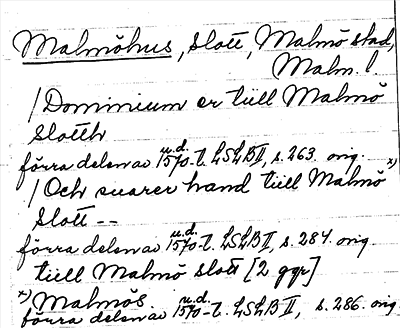 Malmöhus, slott, Malmö stad,
Malm. l.
/Dominium er tiill Malmö
Slotth
förra delen av 1570-t. LSLB II, s. 263. orig.
u.d.
/Och suarer hand tiill Malmö x)
Slott --
förra delen av 1570-t. LSLB II, s. 284. orig.
u.d.
tiill Malmö slott [2 ggr]
x) Malmös.
förra delen av 1570-t. LSLB II, s. 286. orig.
u.d.